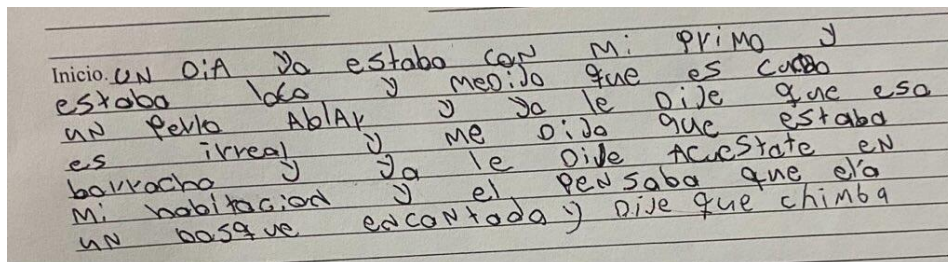 Inicio. UN DiA Yo estabo con Mi PriMo y
estabo loco y MeDiJo que es
UN Perro AblAr y yo le DiJe que eso
es irreal y Me DiJo que estaba
borracho y yo le DiJe AcueState eN
Mi habitacion y el PeNSaba que era
UN bosque encontado y DiJe que chimba